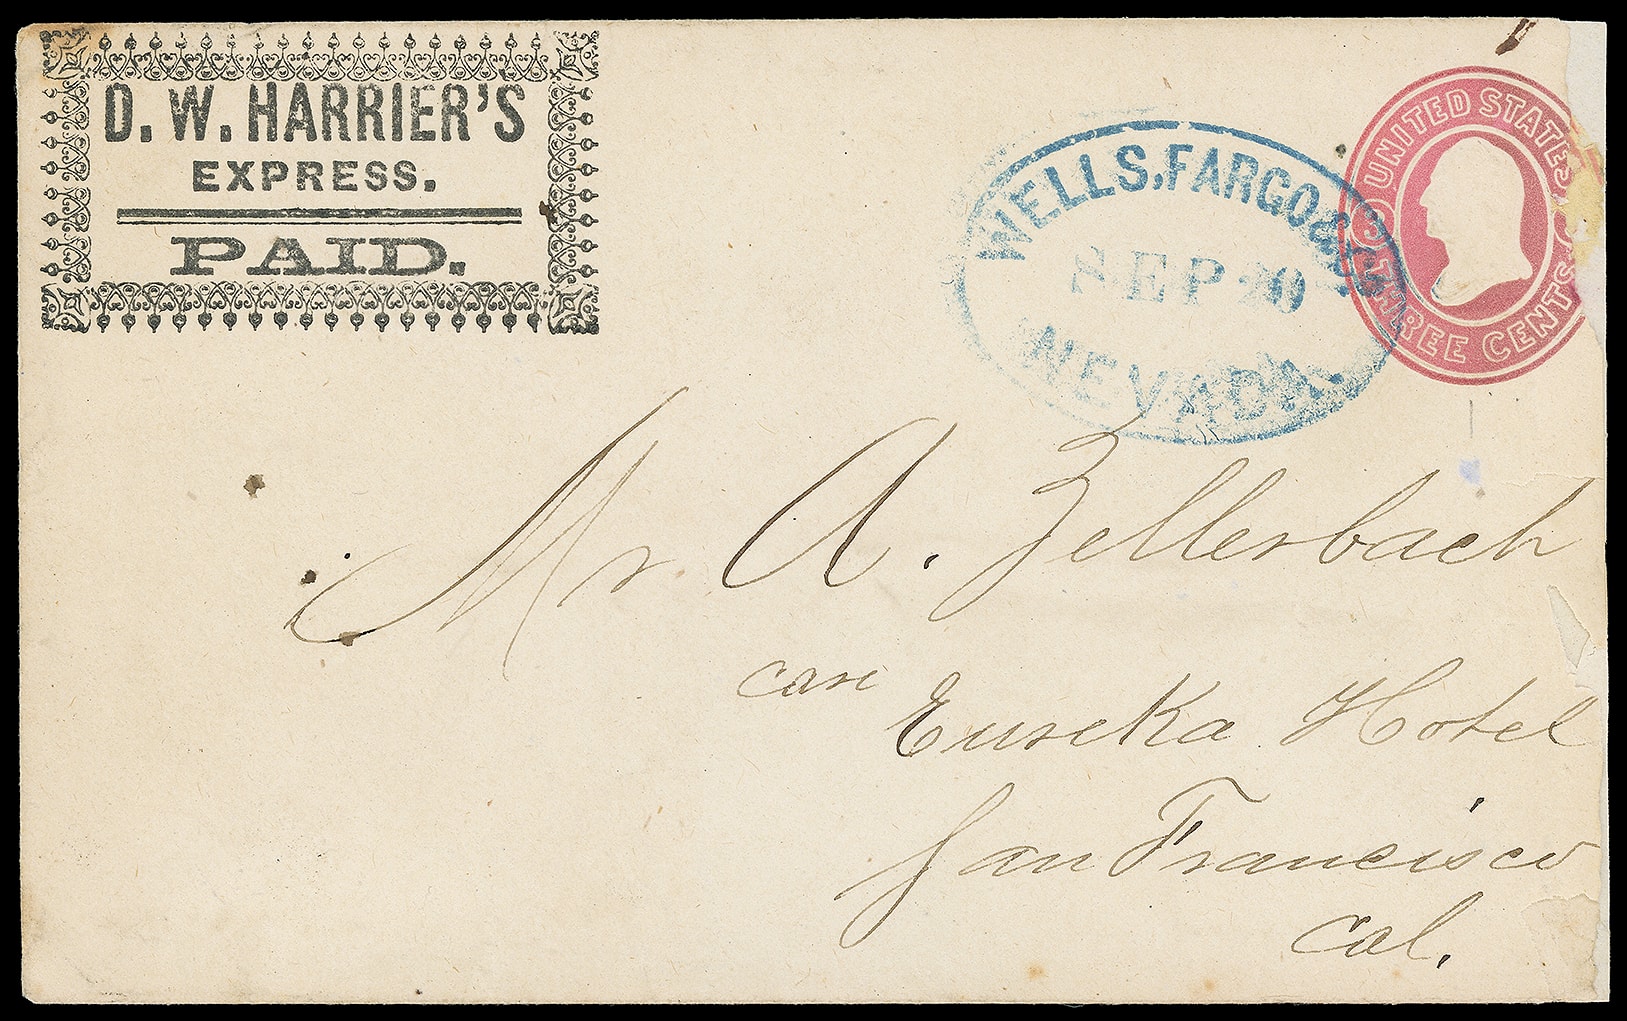 D. W. HARRIER'S
EXPRESS.
PAID.
WELLS, FARGO & Co.
SEP 20
NEVADA.
UNITED STATES
THREE CENTS
3
Mr. A. Zellerbach
care
Eureka Hotel
San Francisco
Cal.